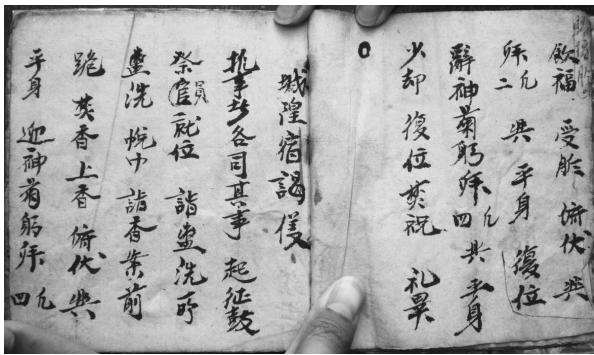 飲福 受胙 俯伏 興
拜 凡二 興 平身 復位
辭神菊躬拜 凡四 興 平身
少却 復位 焚祝 礼畢
城隍宿謁儀
執事者各司其事 起征鼓
祭官員就位 詣盥洗所
盥洗 帨巾 詣香案前
跪 焚香 上香 俯伏 興
平身 迎神菊躬拜 凡四